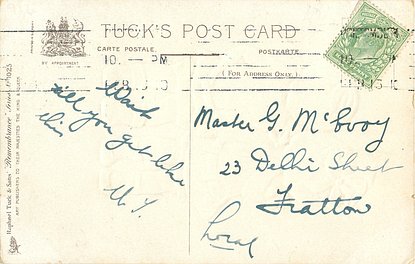 TUCK'S POST CARD
CARTE POSTALE.
POSTKARTE.
BY APPOINTMENT
(FOR ADDRESS ONLY.)
10. — PM
Wait
till you get like
this
Master G. McEvoy
23 Delhi Street
Fratton
Local
Raphael Tuck & Sons' "Remembrance" Series
ART PUBLISHERS TO THEIR MAJESTIES THE KING & QUEEN